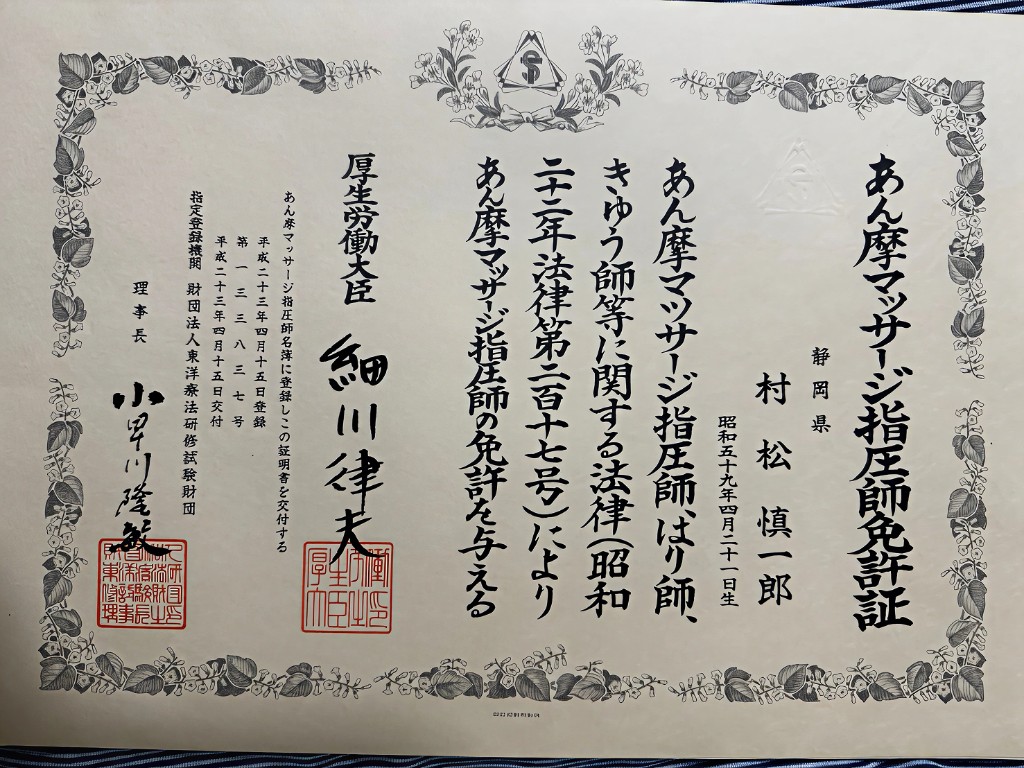 あん摩マッサージ指圧師免許証
静岡県
村松慎一郎
昭和五十九年四月二十一日生
あん摩マツサージ指圧師、はり師、
きゆう師等に関する法律(昭和
二十二年法律第二百十七号)により
あん摩マッサージ指圧師の免許を与える
厚生労働大臣 細川律夫
あん摩マッサージ指圧師名簿に登録しこの証明書を交付する
平成二十三年四月十五日登録
第一三三八三七号
平成二十三年四月十五日交付
指定登録機関 財団法人東洋療法研修試験財団
理事長 小川隆敏